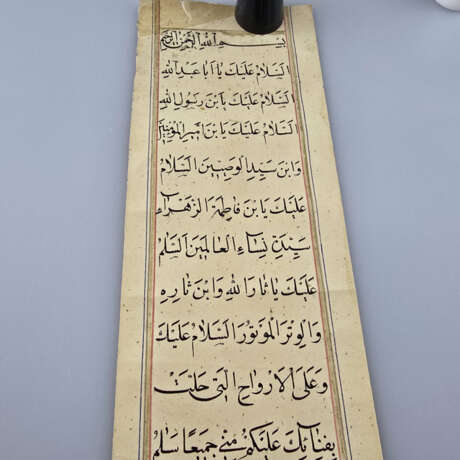 بسم الله الرحمن الرحيم
السلام عليك يا ابا عبدالله
السلام عليك يابن رسول الله
السلام عليك يابن اميرالمؤمنين
وابن سيد الوصيين السلام
عليك يابن فاطمة الزهراء
سيدة نساء العالمين السلم
عليك يا ثارالله وابن ثاره
والوتر الموتور السلام عليك
وعلى الارواح التي حلت
بفنائك عليكم مني جميعا سلم